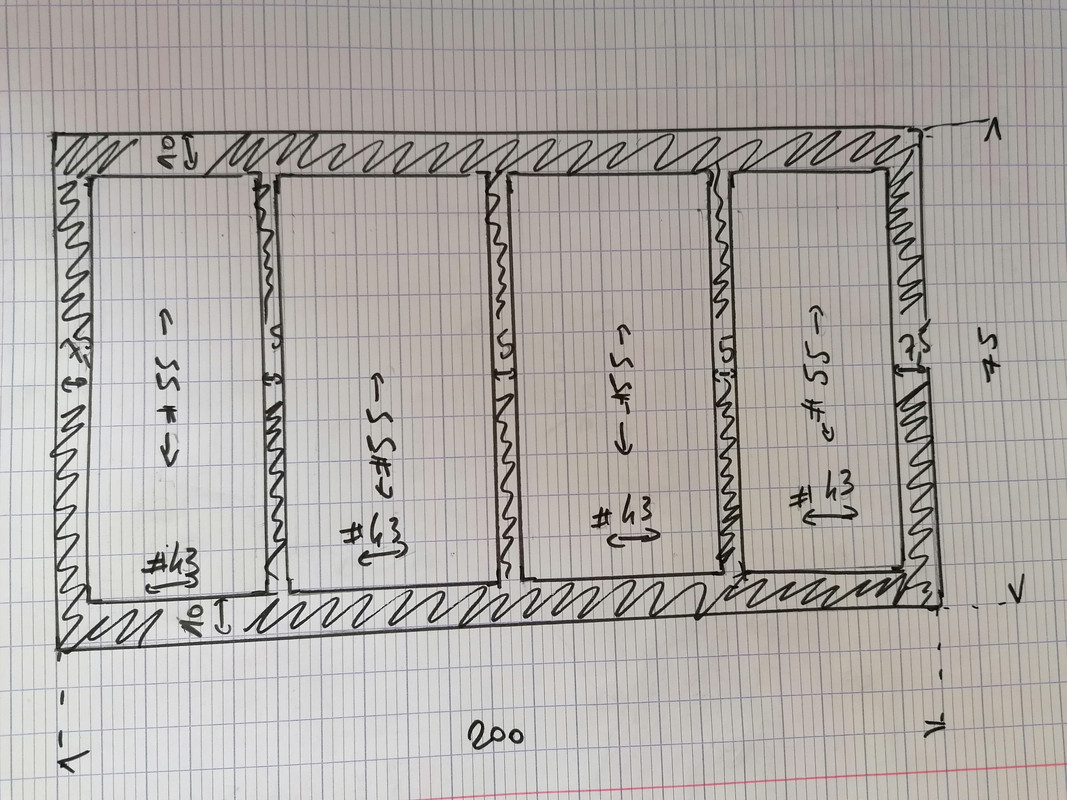 10
7,5
5
5
5
7,5
75
#55
#55
#55
#55
#43
#43
#43
#43
10
200